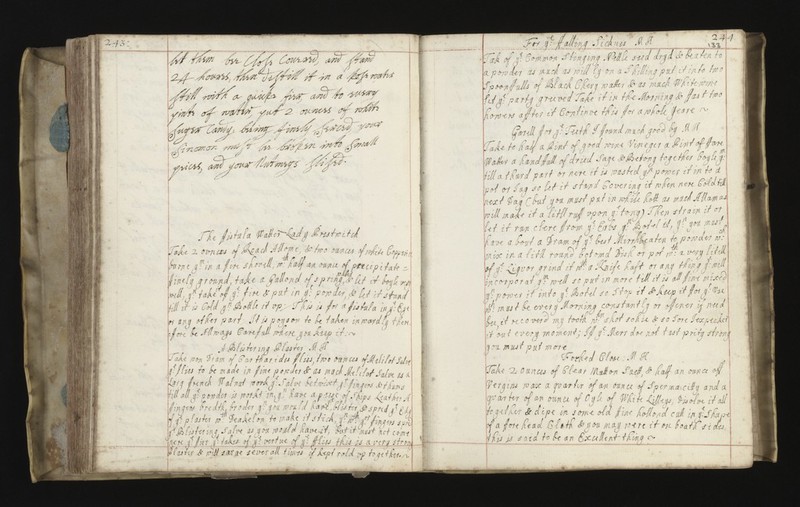 243:
let them be Close Couered, and stand
24 houers, then distill it in a Rose water
still with a quicke fire, and to euery
pinte of water put 2 ounces of white
Suger Candy, being finely searced your
Sinemon must be broken into small
peices, and your Nutmegs slised.
The fistala Watter Lady Brestwitch
Take 2 ounces of Roach Allome, & two ounces of white Copperis
burne yt in a fire shovell, wth half an ounce of precepitate
finely ground, take a Gallond of spring & let it boyle
well, yn take of ye fire & put in ye powder, & let it stand
till it is Cold yn Bottle it up. This is for a fistala in ye
or any other part. It is poyson to be taken inwardly there
fore be Allways Carefull where you keep it
A Blistering Plaster M H
Take one Dram of Cantharides flies, two ounces of Melilot Salve
ye flies to be made in fine powder & as much Melilot Salve as a
Larg french Walnot work ye Salve betwixt ye fingers & thus
till all ye powder is workt in yn have a peece of Ships Leather A
fingers breadth broder yn you would have Blister, & spred ye Edg
of ye plaster wth Deakelon to make it stick yn wth ye fingers spre
ye Blistering Salve as you would have it, But it must not come
nere ye fire yt takes of ye vertue of ye flies this is a very strong
plaster & will sarve severall times if kept rold up together
For ye Falling Sicknes M H
244
133
Tak of ye Common Stenging Nettle seed dryd & beaten to
a powder as much as will ly on a Shilling put it into two
Spoonfulls of Black Chery watter & as much White wine
Let ye party greeved Take it in the Morning & fast two
howers after it Continue this for a whole yeare
Gargll for ye Teeth I found much good by M H
Take to half a Pint of good wine Vineger a Pint of fare
Watter a handfull of dried Sage & Betony together boyle ym
till a therd part or nere it is wasted yn power it in to a
pot or Jug so let it stand Covering it when nere Cold till
next Day (but you must put in while hott as much Allam as
will make it a litll ruff upon ye tong) Then strain it or
let it run clere from ye Earbs yn Botel it, yn you must
have a bout a Dram of ye best Mirr beaten to powder wch
mix in a litll round botomd Dish or pot wth a very litell
of ye Liquer grind it wth a Knife haft or any thing yt will
incorporat yn well so put in more till it is all fine mixed
yn power it into ye Botel so Stop it & keep it for ye use
wch must be every Morning constantly or oftener if need
bee, it recovered my tooth wch shot ackse & so sore I expected
it out every moment; If ye Murr doe not tast prety strong
you must put more
Forhed Cloau M H
Take 2 ounces of Clear Mutton Suet, & half an ounce off
Vergins wax a quarter of an ounce of Spermacity and a
quarter of an ounce of Oyle of White Lillyes, disolve it all
together & dipe in some old fine holland cut in ye Shape
of a fore head Cloth & you may were it on boath sides,
this is used to be an Excellent thing